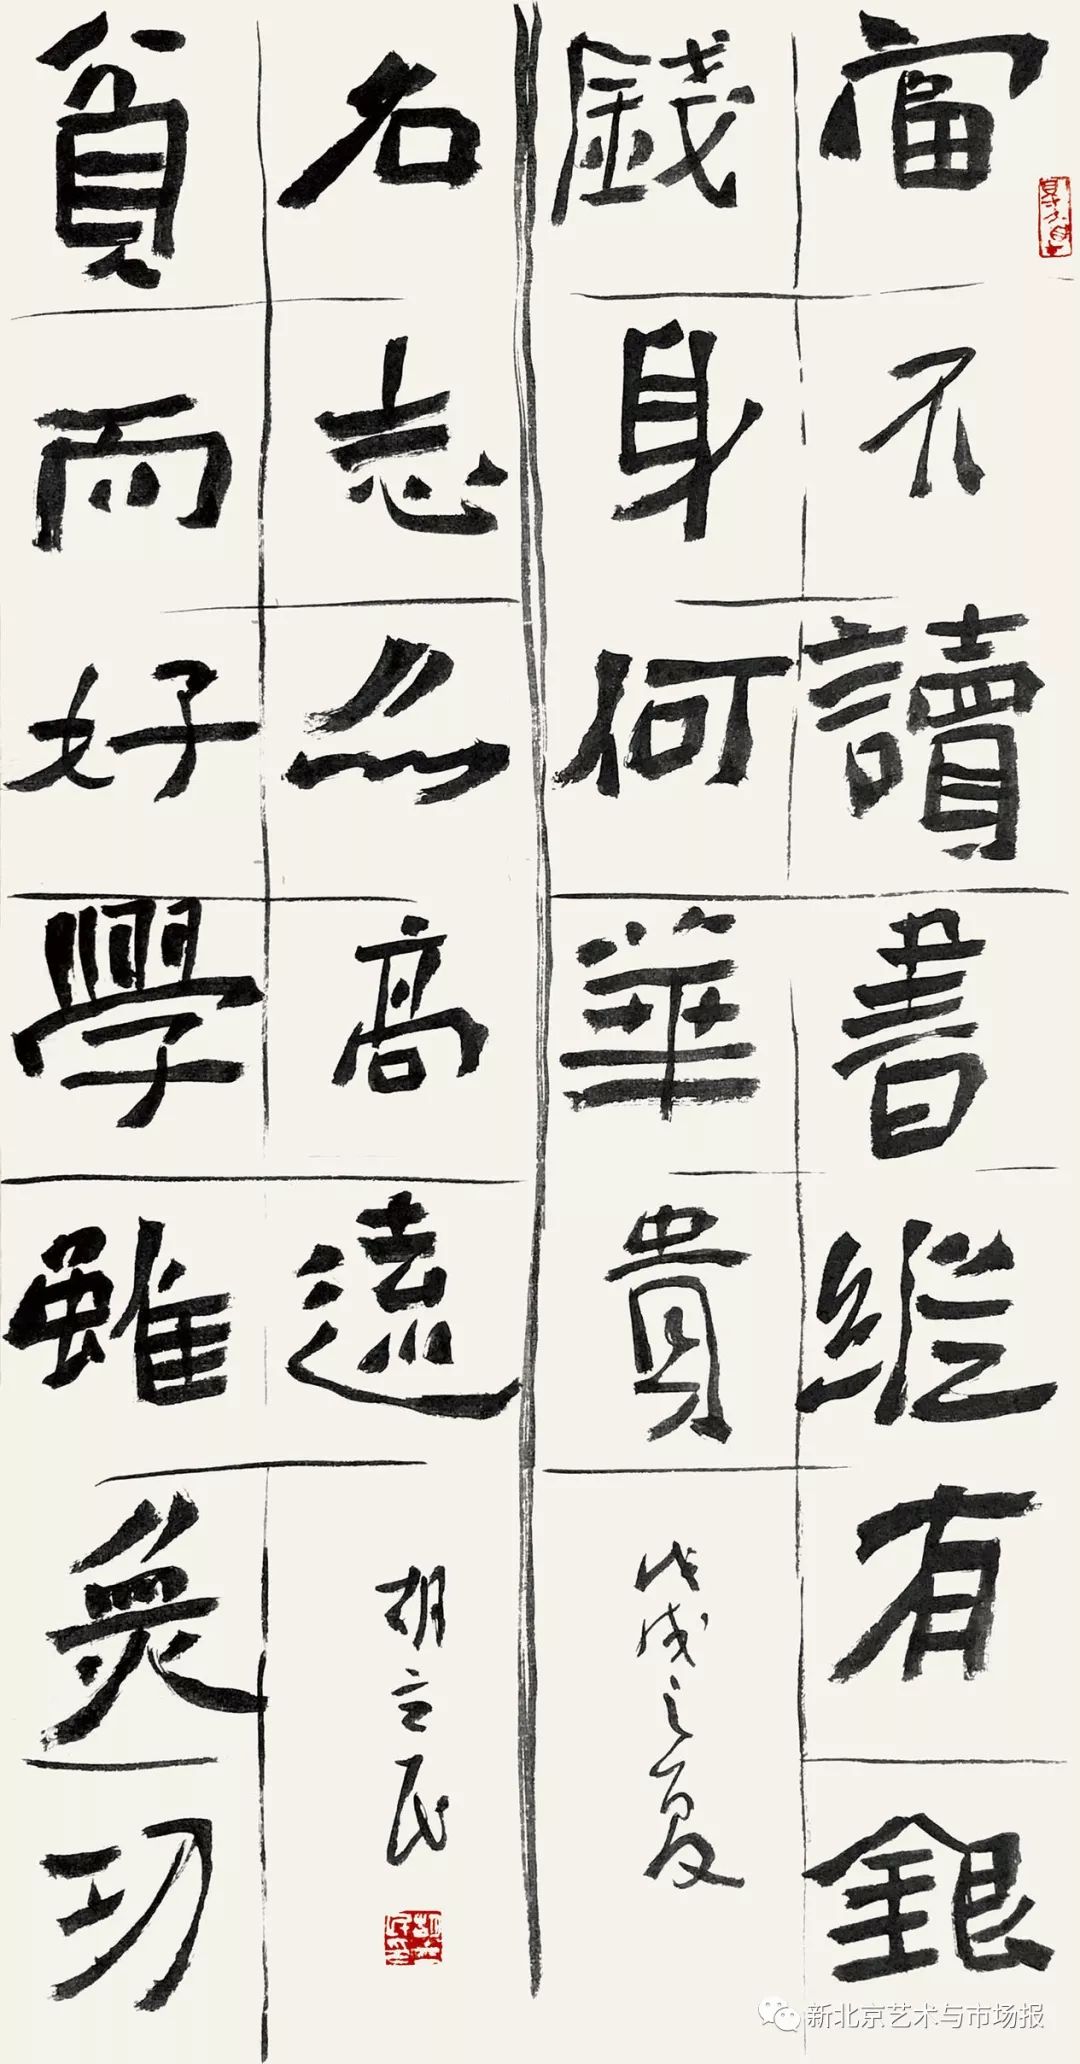 富不讀書縱有銀
錢身何華貴
戊戌之夏
貧而好學雖無功
名志亦高遠
胡立民
新北京艺术与市场报